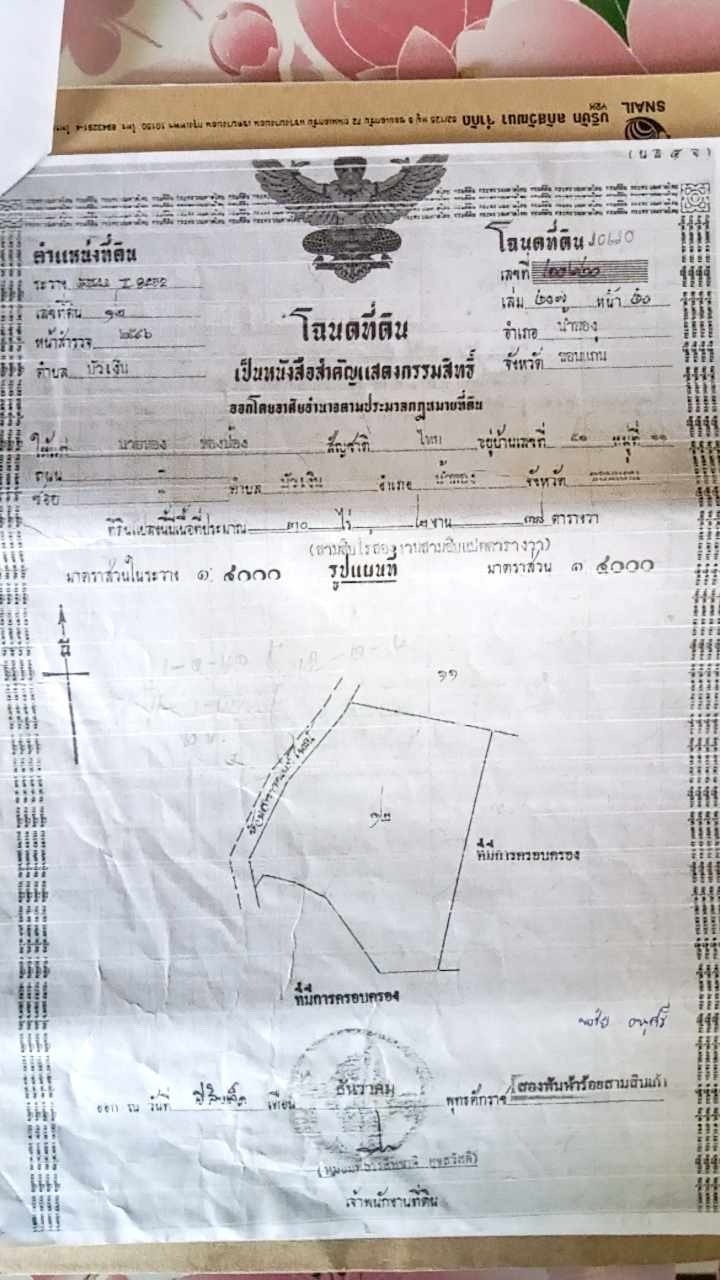 SNAIL
บริษัท
จำกัด
(น.ส.๔ จ)
ตำแหน่งที่ดิน
ระวาง
เลขที่ดิน ๑๒
หน้าสำรวจ ๒๕๖
ตำบล บัวเงิน
โฉนดที่ดิน
เลขที่
เล่ม ๒๑๗ หน้า ๒๐
อำเภอ น้ำพอง
จังหวัด ขอนแก่น
โฉนดที่ดิน
เป็นหนังสือสำคัญแสดงกรรมสิทธิ์
ออกโดยอาศัยอำนาจตามประมวลกฎหมายที่ดิน
ให้แก่ นายทอง สัญชาติ ไทย อยู่บ้านเลขที่ ๕๑ หมู่ที่ ๑๑
ถนน
ซอย - ตำบล บัวเงิน อำเภอ น้ำพอง จังหวัด ขอนแก่น
ที่ดินแปลงนี้มีเนื้อที่ประมาณ ๓๐ ไร่ ๒ งาน ๓๘ ตารางวา
(สามสิบไร่สองงานสามสิบแปดตารางวา)
มาตราส่วนในระวาง ๑:๔๐๐๐ รูปแผนที่ มาตราส่วน ๑:๔๐๐๐
๑๑
๑๒
ที่มีการครอบครอง
ที่มีการครอบครอง
ออก ณ วันที่ เดือน ธันวาคม พุทธศักราช สองพันห้าร้อยสามสิบเก้า
เจ้าพนักงานที่ดิน